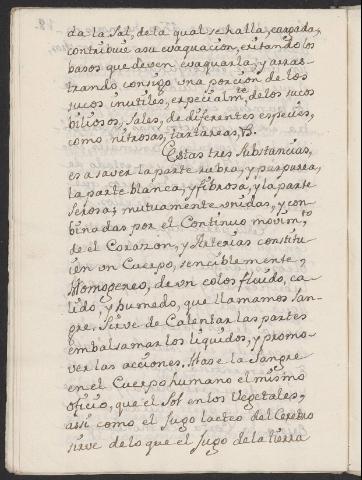 da la Sal, de la qual se halla, cargada,
contribuie asu evaquacion, exitando los
basos que deven evaquarla, y arras-
trando consigo una porcion de los
sucos inutiles, especialm.te de los sucos
biliosos, Sales, de diferentes especies,
como nitrosas, tartareas, &.
Estas tres Substancias,
es a saver la parte rubra, y purpurea,
la parte blanca, y fibrosa, y la parte
serosa, mutuamente unidas, y con-
binadas por el Continuo movim.to
de el Corazon, y Arterias constitu-
ien un Cuerpo, senciblemente,
Homogeneo, de un color fluido, ca-
lido, y humedo, que llamamos San-
gre. Sirve de Calentar las partes
embalsamar los liquidos, y promo-
ver las acciones. Hase la Sangre
en el Cuerpo humano el mismo
oficio, que el Sol en los Vegetales,
assi como el Jugo lacteo del Cerebro
sirve de lo que el jugo de la tierra